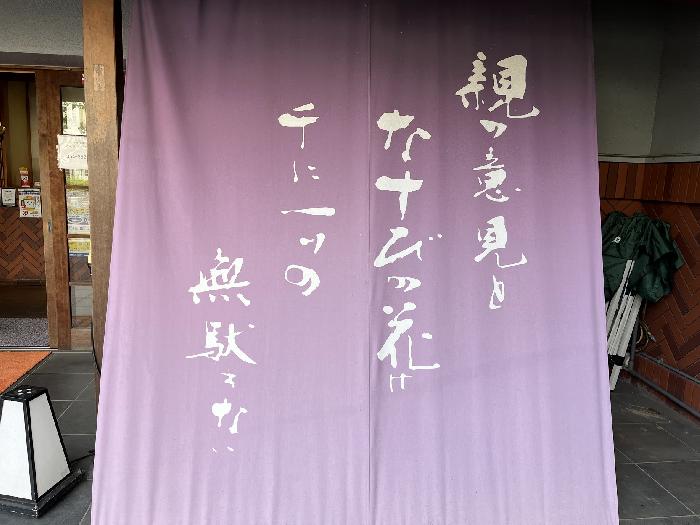 親の意見と
なすびの花は
千に一つの
無駄もない